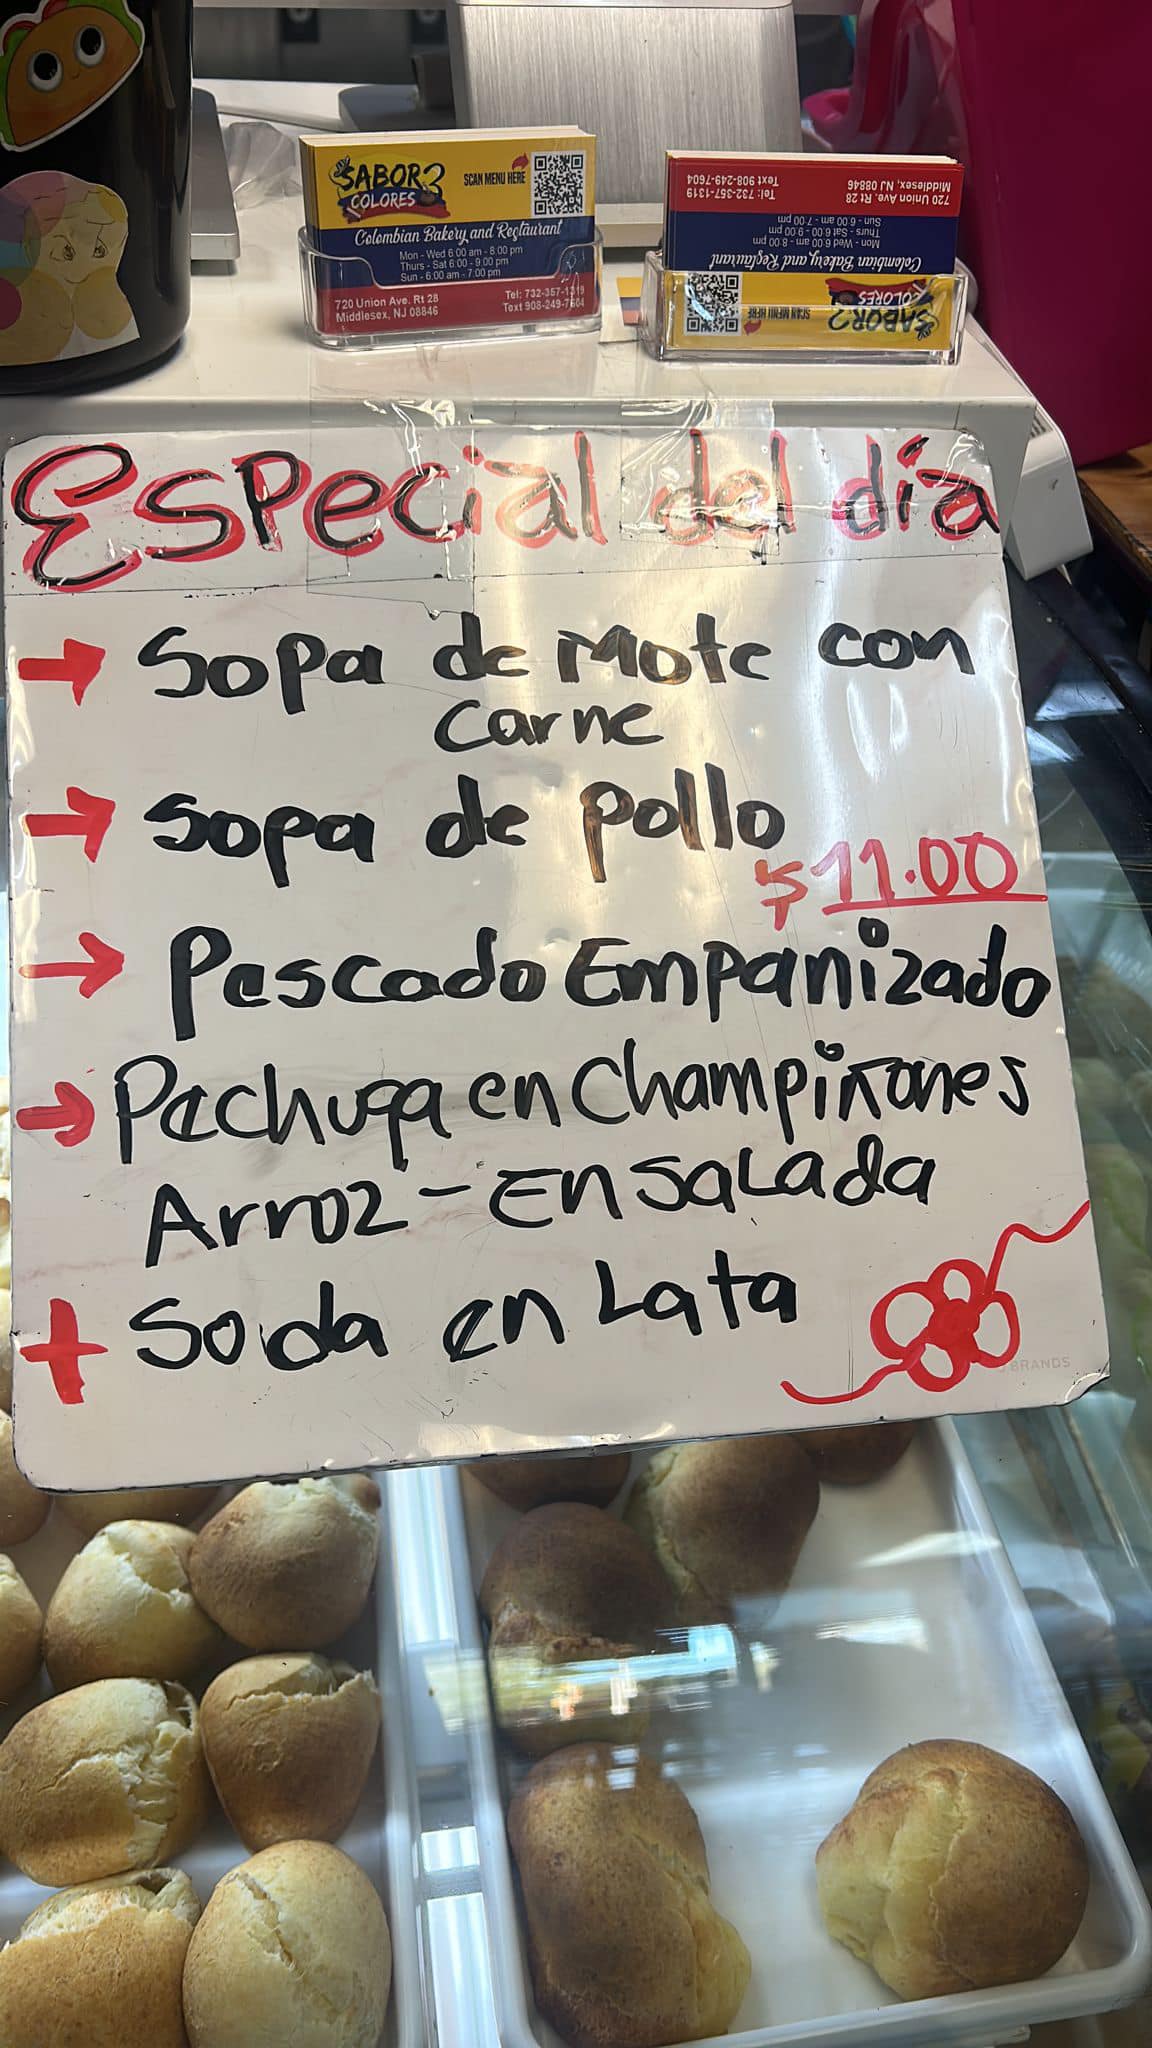 SABOR3
COLORES
SCAN MENU HERE
Colombian Bakery and Restaurant
Mon - Wed 6:00 am - 8:00 pm
Thurs - Sat 6:00 - 9:00 pm
Sun - 6:00 am - 7:00 pm
720 Union Ave. Rt 28
Middlesex, NJ 08846
Tel: 732-357-1319
Text 908-249-7604
720 Union Ave. Rt 28
Middlesex, NJ 08846
Tel: 732-357-1319
Text 908-249-7604
Mon - Wed 6:00 am - 8:00 pm
Thurs - Sat 6:00 - 9:00 pm
Sun - 6:00 am - 7:00 pm
Colombian Bakery and Restaurant
SCAN MENU HERE
SABOR3
COLORES
Especial del día
→ Sopa de Mote con
Carne
→ Sopa de pollo
$11.00
→ Pescado Empanizado
→ Pechuga en Champiñones
Arroz - Ensalada
+ Soda en Lata
BRANDS